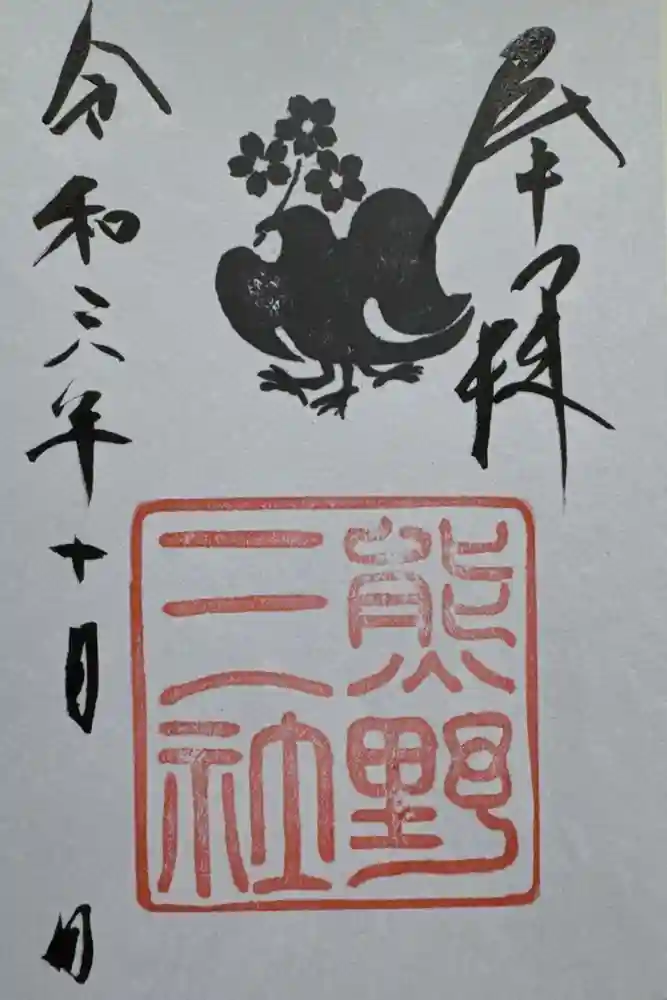 奉拝
熊野
三社
令和三年十月 日